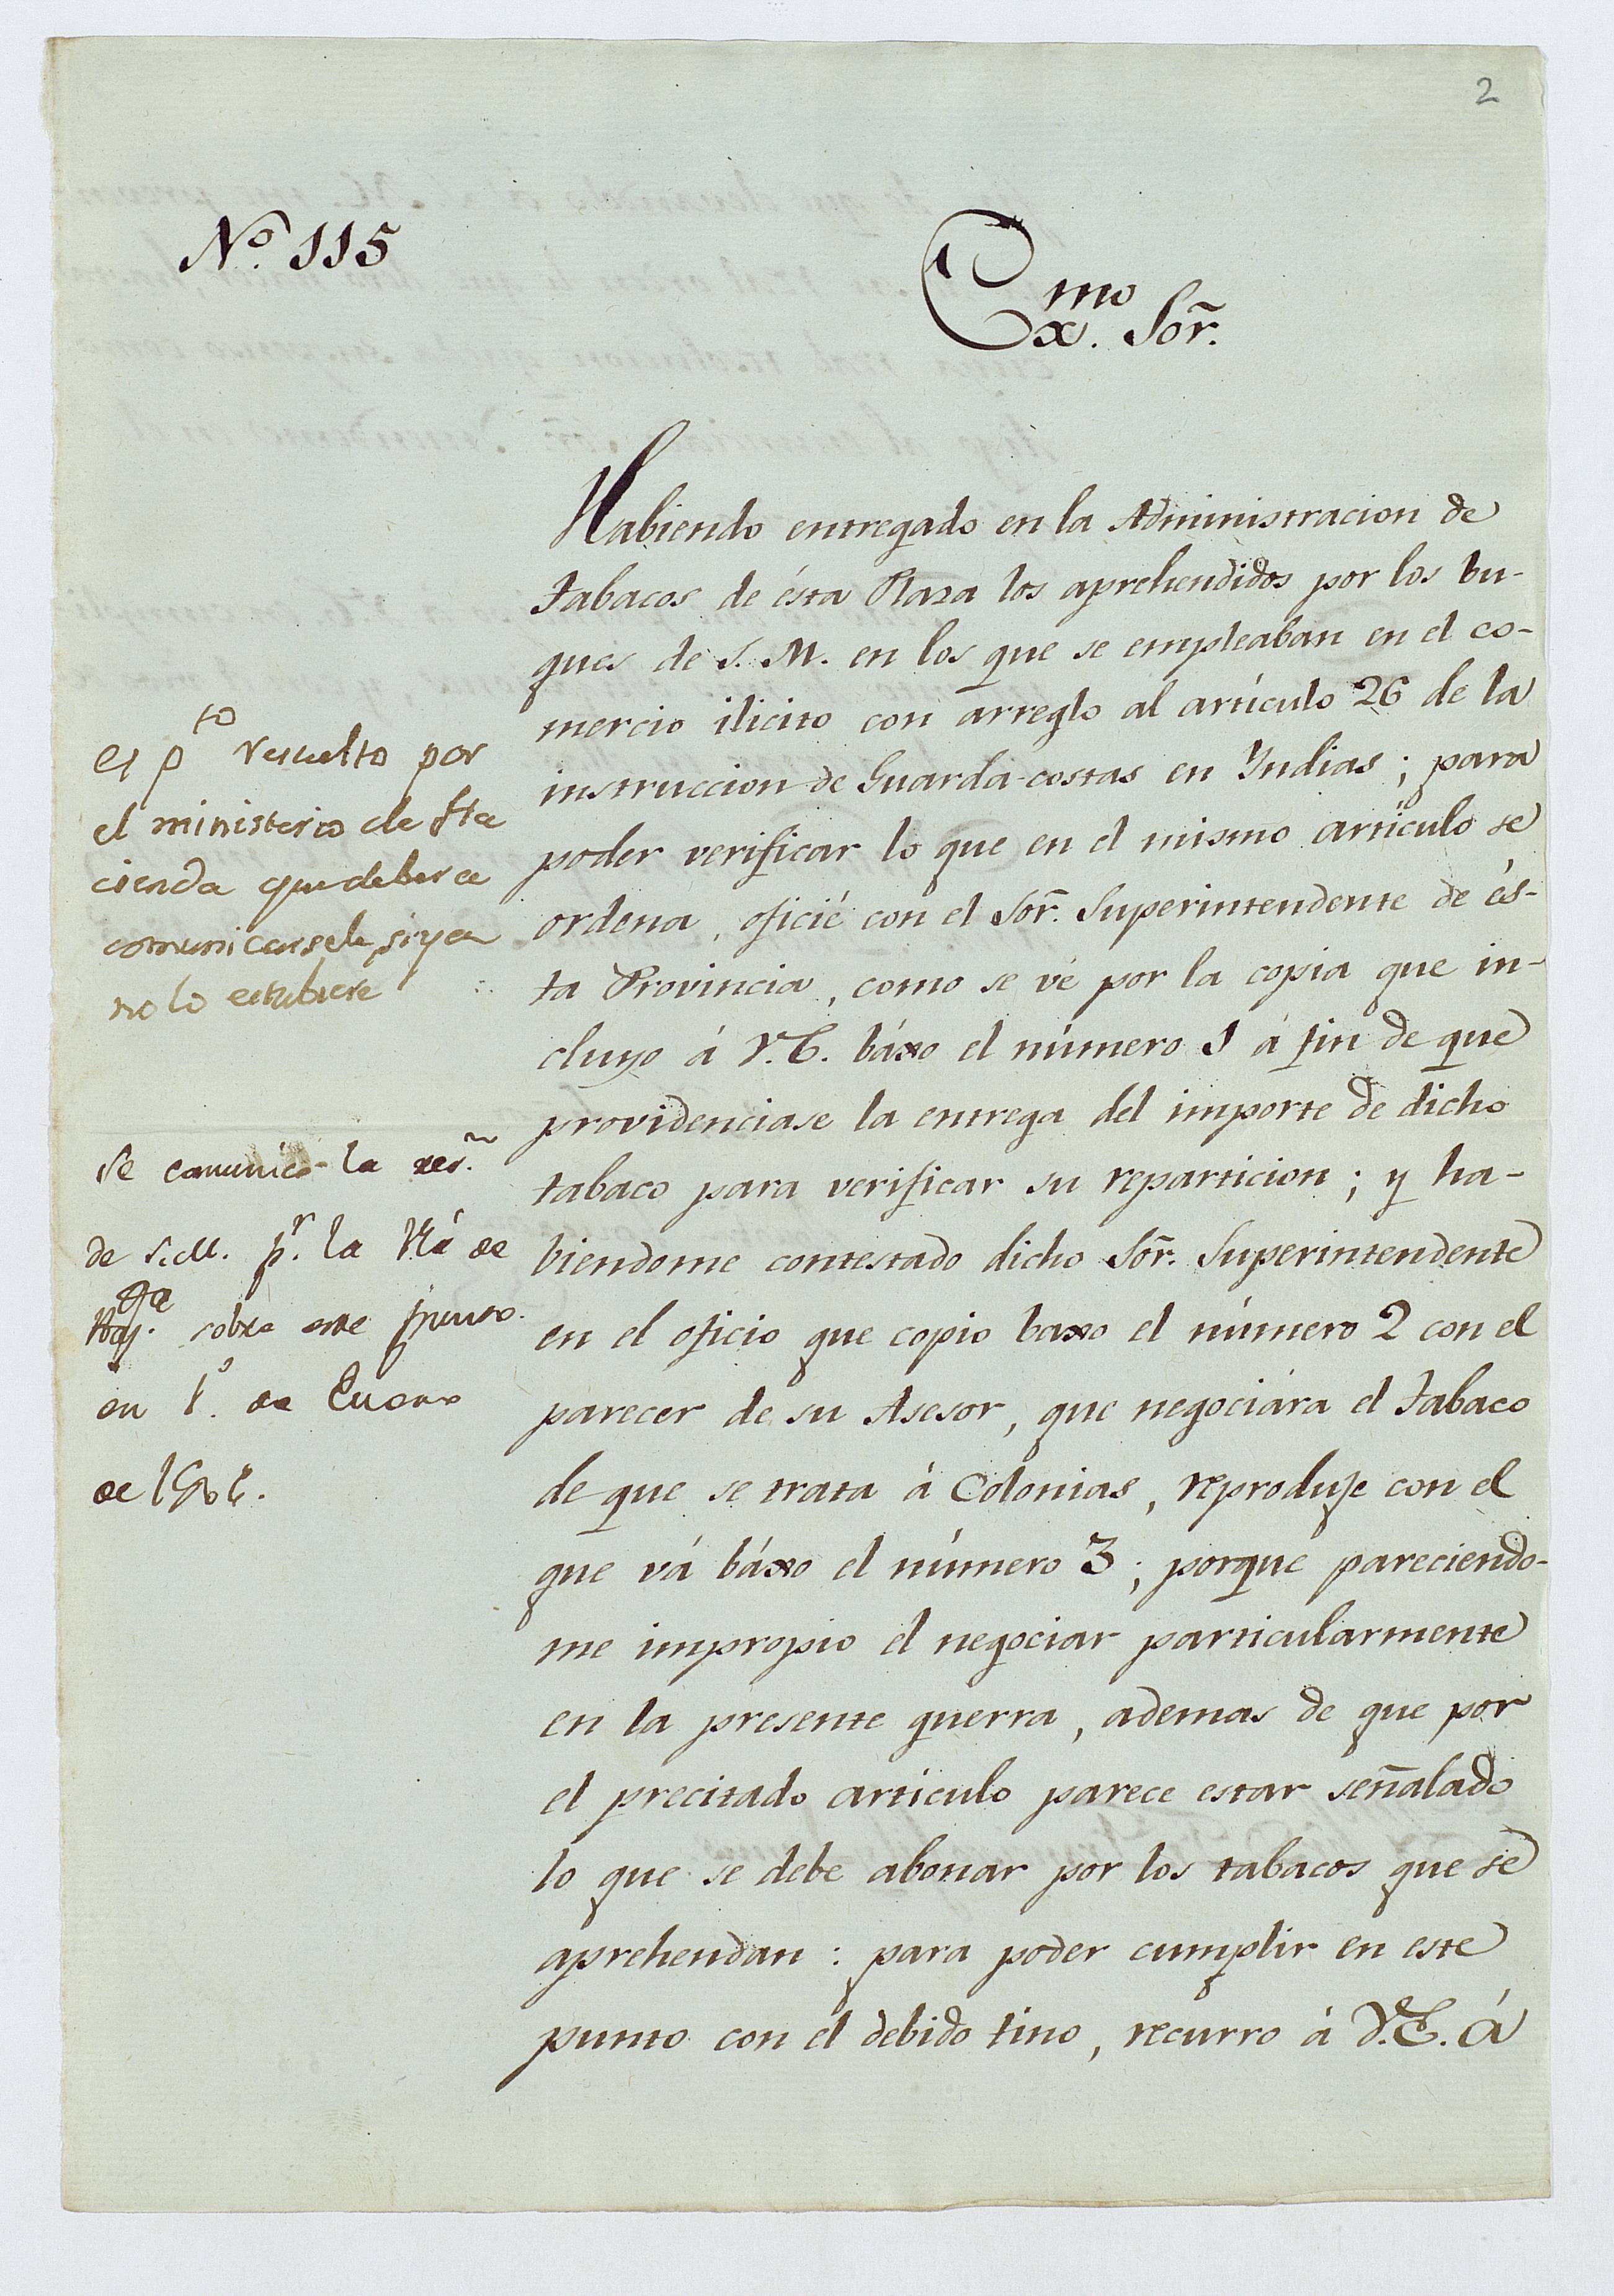 2
Nº. 115
Exmo. Sor̃.
Habiendo entregado en la Administracion de
Tabacos de ésta Plaza los aprehendidos por los bu-
ques de S. M. en los que se empleaban en el co-
mercio ilicito con arreglo al artículo 26 de la
instruccion de Guarda-costas en Yndias; para
poder verificar lo que en el mismo artículo se
ordena, oficié con el Sor̃. Superintendente de és-
ta Provincia, como se vé por la copia que in-
cluyo á V.E. báxo el número 1 á fin de que
providenciase la entrega del importe de dicho
tabaco para verificar su reparticion; y ha-
biendome contestado dicho Sor̃. Superintendente
en el oficio que copio baxo el número 2 con el
parecer de su Asesor, que negociára el Tabaco
de que se trata á Colonias, reproduje con el
que vá báxo el número 3; porque pareciendo-
me impropio el negociar particularmente
en la presente guerra, ademas de que por
el precitado articulo parece estar señalado
lo que se debe abonar por los tabacos que se
aprehendan: para poder cumplir en este
punto con el debido tino, recurro á V.E. á
es pto resuelto por
el ministerio de Ha
cienda que debera
comunicarsele si ya
no lo estubiere
Se comunicó la res.n
de S.M. pr. la Via de
sobre este punto
en 1º. de Enero
de